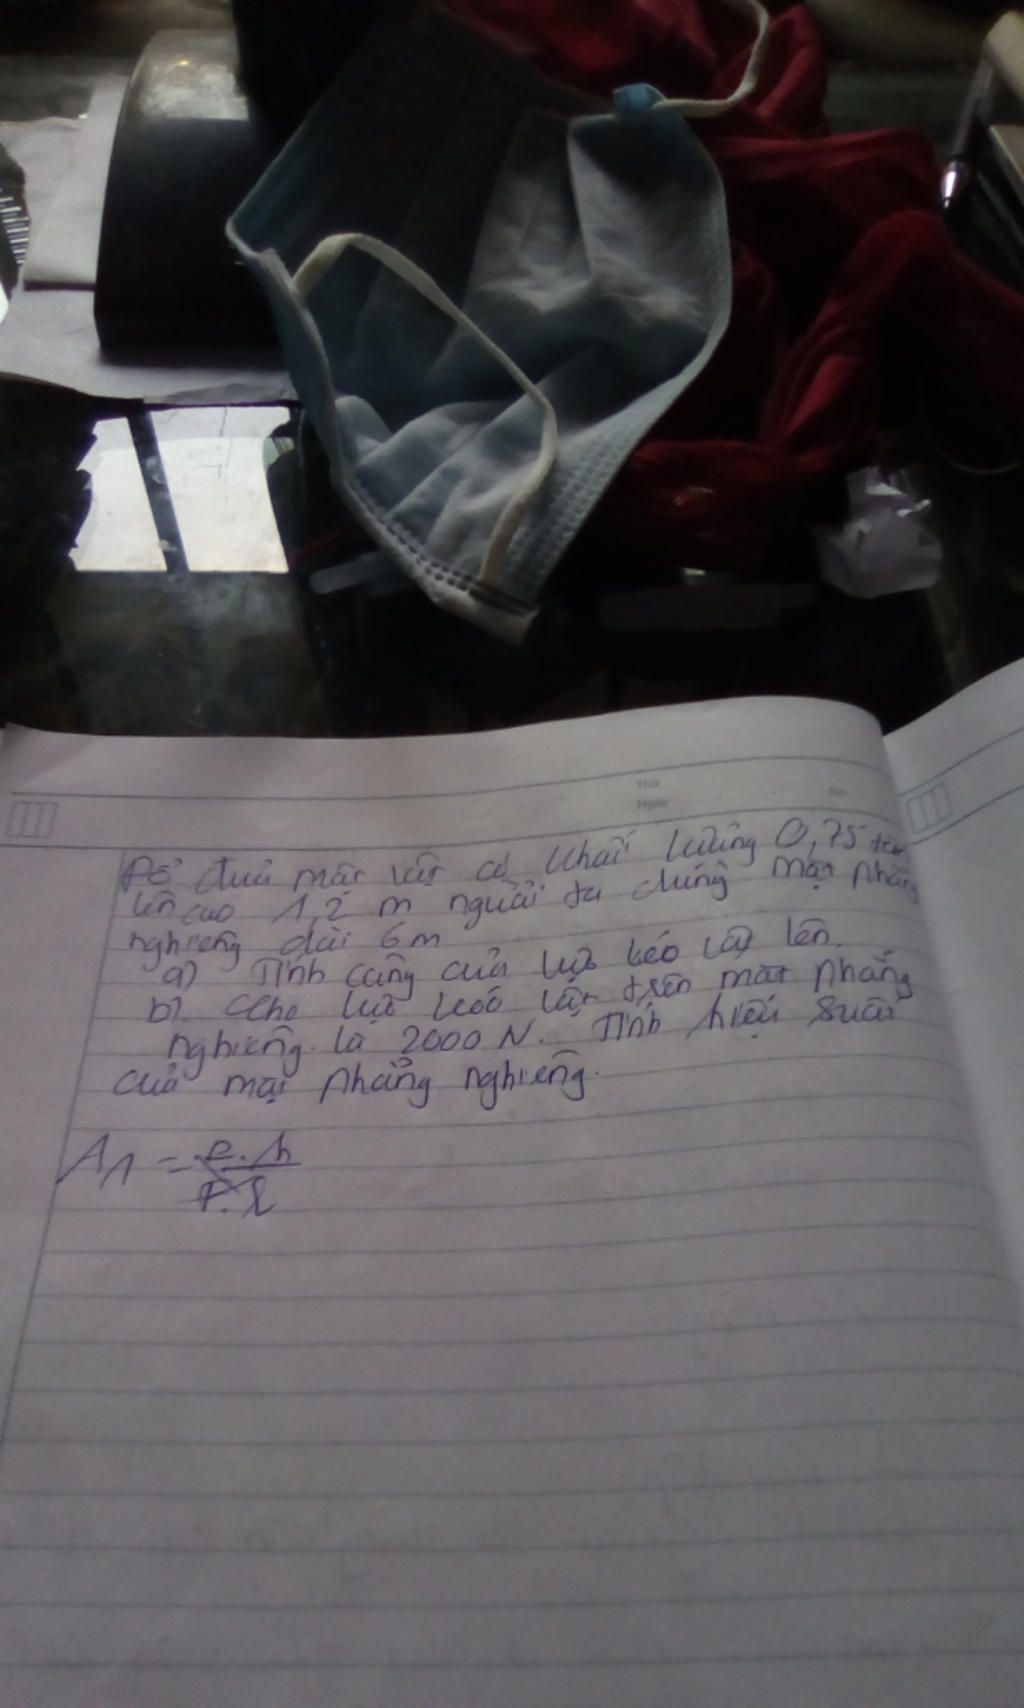 Thứ
Ngày No.
Để đưa một vật có khối lượng 0,75 tấn
lên cao 1,2 m người ta dùng mặt phẳng
nghiêng dài 6m
a) Tính công của lực kéo vật lên.
b). Cho lực kéo vật trên mặt phẳng
nghiêng là 2000 N. Tính hiệu suất
của mặt phẳng nghiêng.
A1 = P.h
F.l